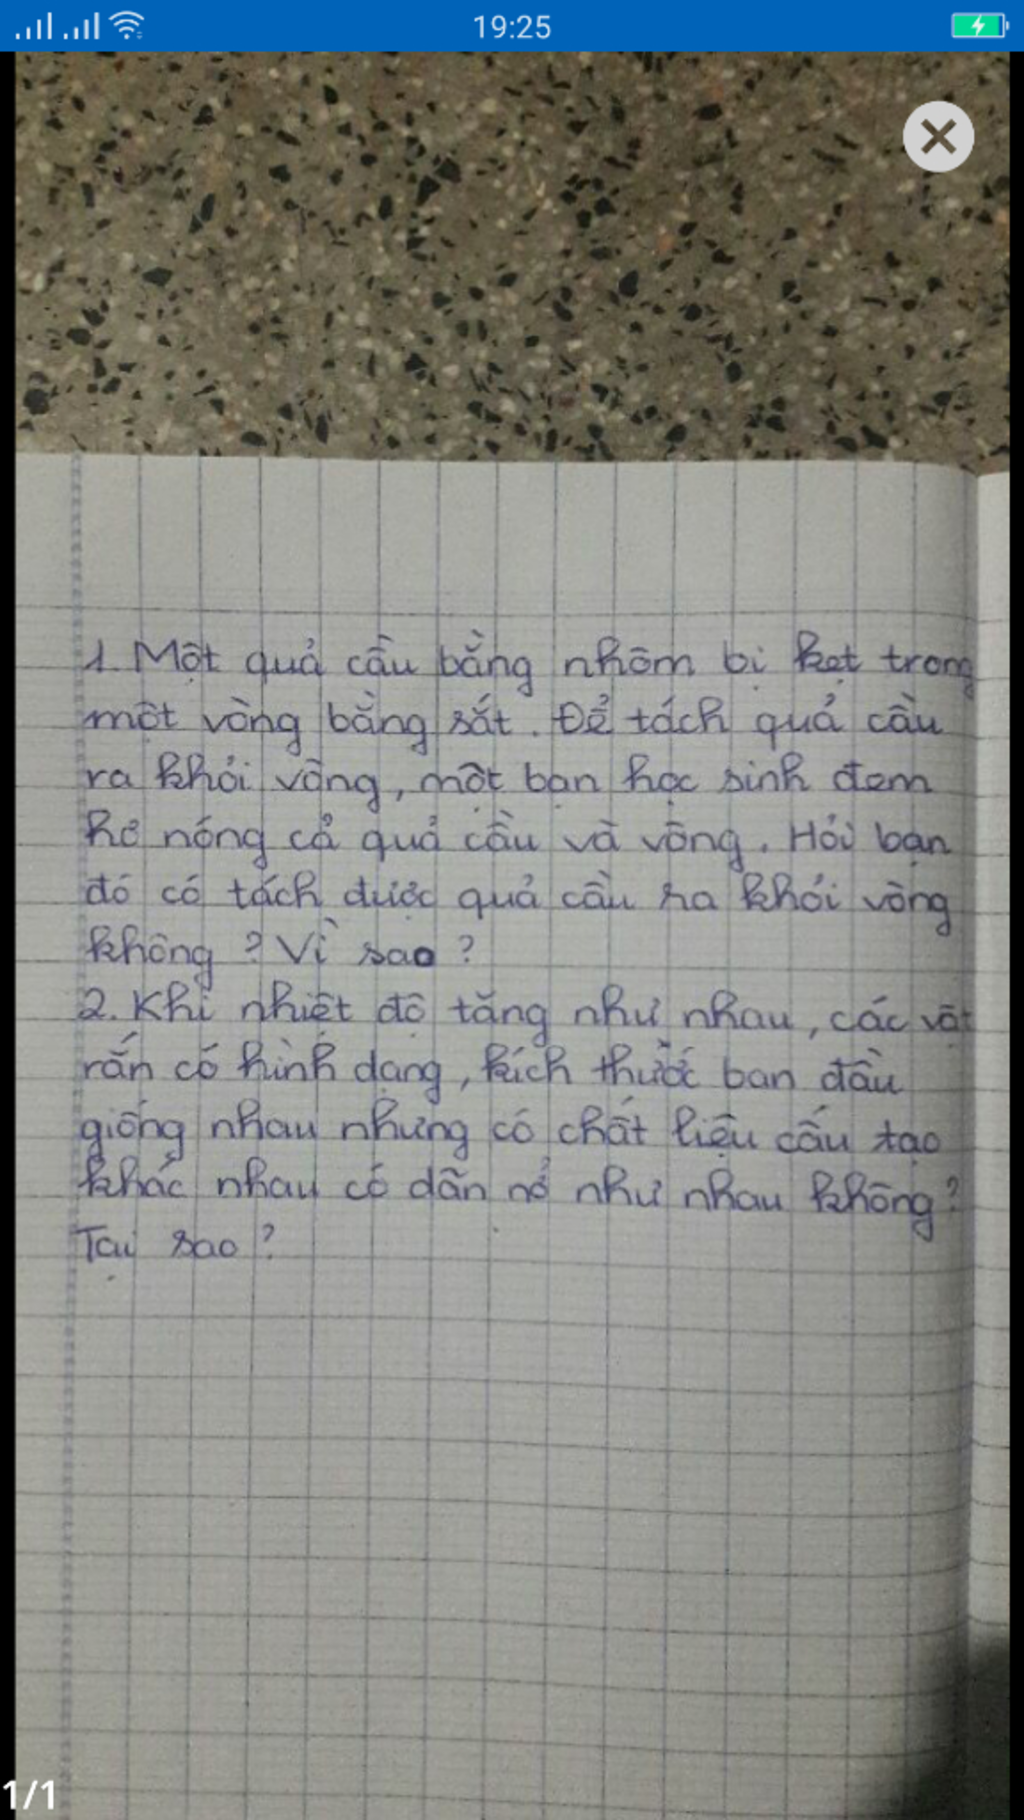 19:25
1. Một quả cầu bằng nhôm bị kẹt trong
một vòng bằng sắt. Để tách quả cầu
ra khỏi vòng, một bạn học sinh đem
hơ nóng cả quả cầu và vòng. Hỏi bạn
đó có tách được quả cầu ra khỏi vòng
không? Vì sao?
2. Khi nhiệt độ tăng như nhau, các vật
rắn có hình dạng, kích thước ban đầu
giống nhau nhưng có chất liệu cấu tạo
khác nhau có dãn nở như nhau không?
Tại sao?
1/1